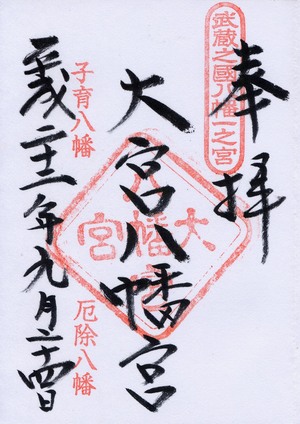 武蔵之國八幡一之宮
奉拝
大宮八幡宮
大宮八幡宮
子育八幡
厄除八幡
平成二十二年九月二十四日